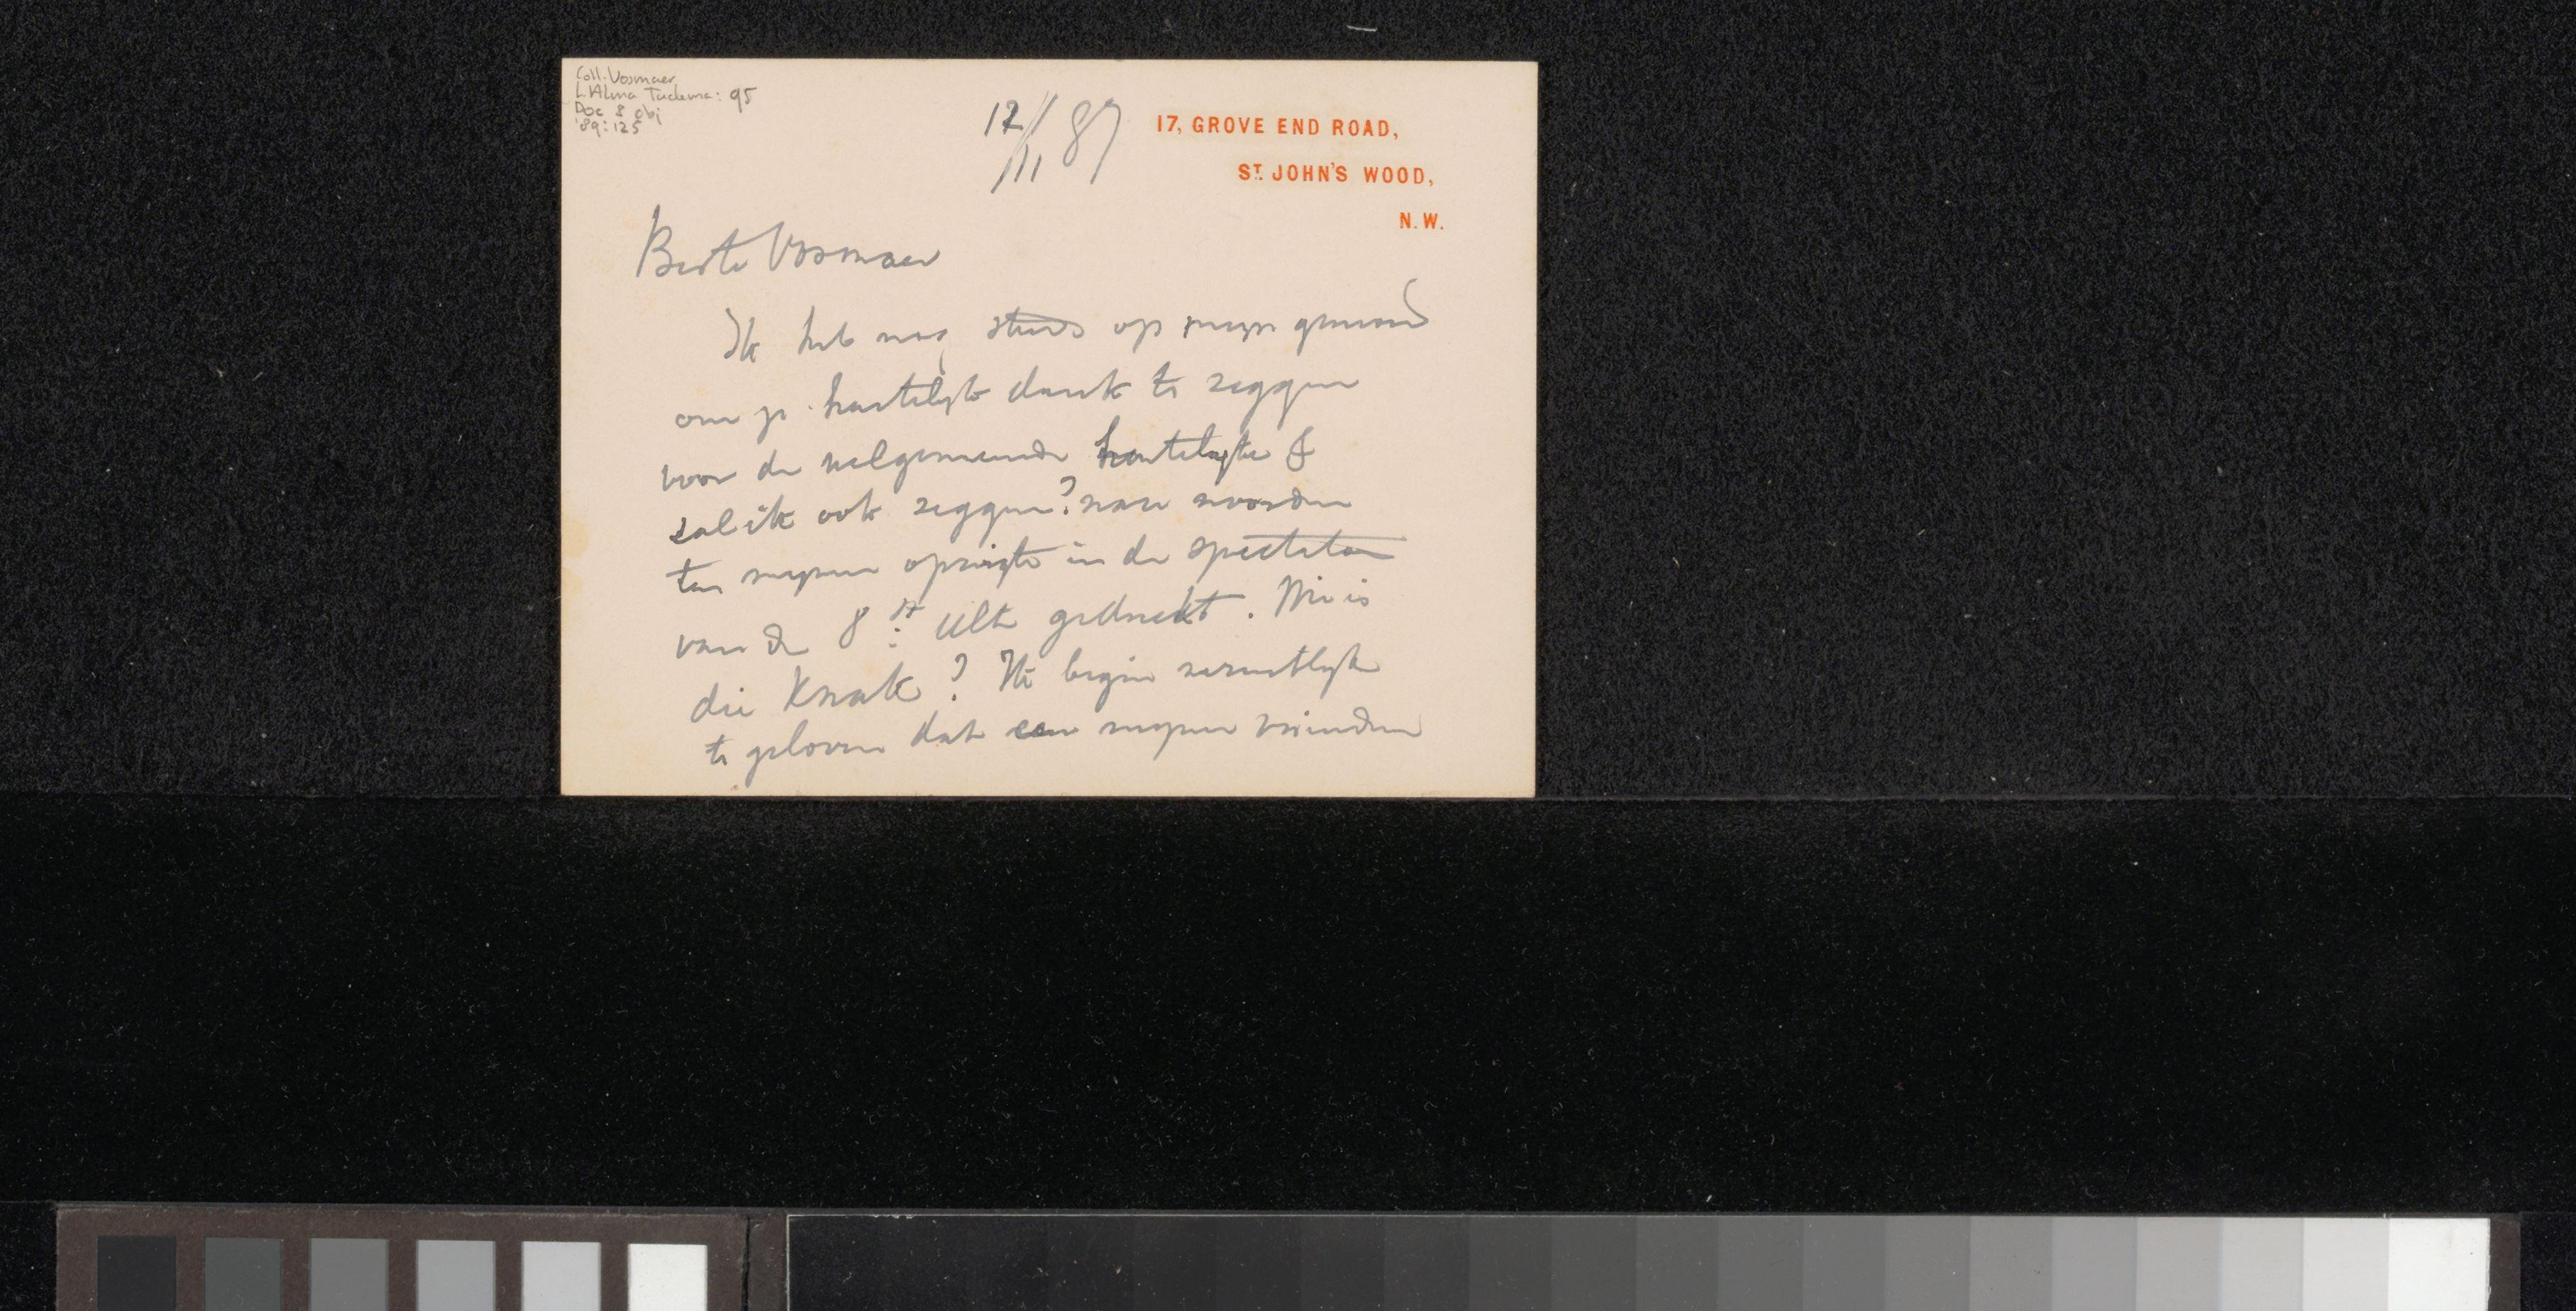 Coll. Vosmaer
L. Alma Tadema: 95
Doc 8 obj
'89:125
12/11 87
17, GROVE END ROAD,
ST. JOHN'S WOOD,
N.W.
Beste Vosmaer
Ik heb nog steeds op mijn
om je hartelijk dank te zeggen
voor de welgemeende hartelijke &
zal ik ook zeggen? ware woorden
ten mijnen opzigte in de spectator
van de 8st Ult gedrukt. Wie is
die Knak? Ik begin
te geloven dat een mijner vrienden